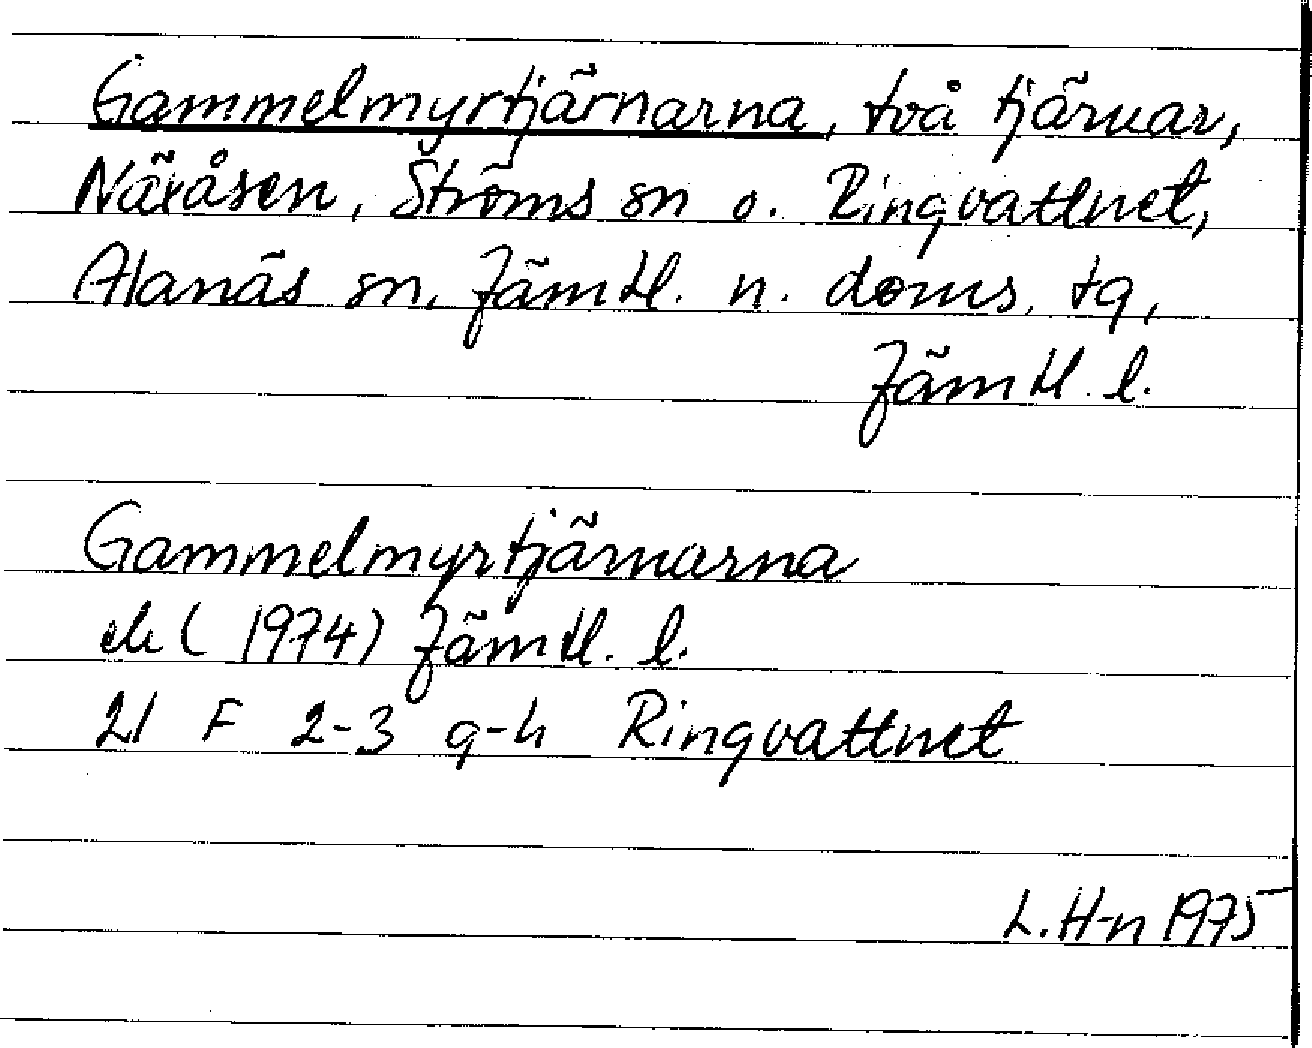 Gammelmyrtjärnarna, två tjärnar,
Näxåsen, Ströms sn o. Ringvattnet,
Alanäs sn, Jämtl. n. doms. tg,
Jämtl. l.
Gammelmyrtjärnarna
ek (1974) Jämtl. l.
21 F 2-3 g-h Ringvattnet
L. H-n 1975